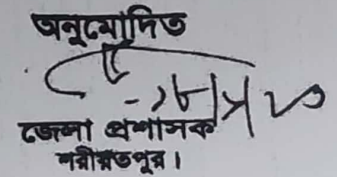 অনুমোদিত
জেলা প্রশাসক
শরীয়তপুর।